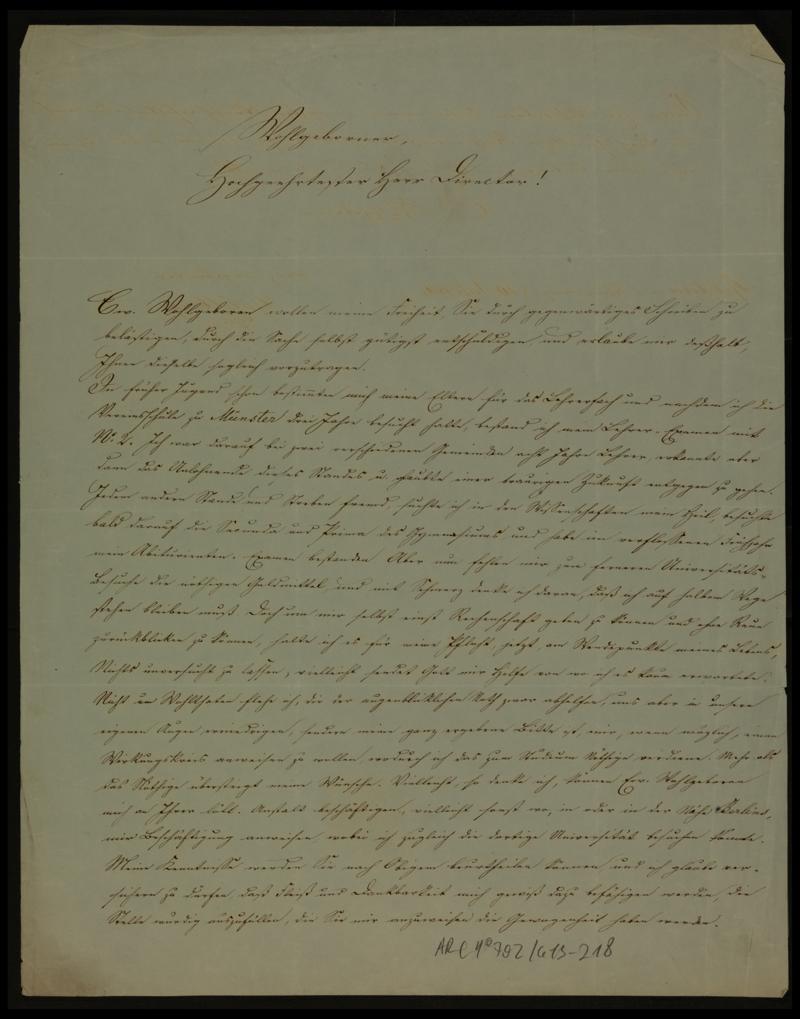 Wohlgeborner,
Hochgeehrtester Herr Director!
Ew. Wohlgeboren wollen meine Freiheit, Sie durch gegenwärtiges Schreiben zu
belästigen, durch die Sache selbst gütigst entschuldigen und erlaube mir deßhalb,
Ihnen dieselbe sogleich vorzutragen.
In früher Jugend schon bestimmten mich meine Eltern für das Lehrerfach und nachdem ich die
Vereinsschule zu Münster drei Jahre besucht hatte, bestand ich mein Lehrer-Examen mit
No 2. Ich war darauf bei zwei verschiedenen Gemeinden acht Jahre Lehrer, erkannte aber
dann das Unlohnende dieses Standes u. glaubte einer traurigen Zukunft entgegen zu gehen.
Jedem andern Stande und Streben fremd, suchte ich in den Wissenschaften mein Heil, besuchte
bald darauf die Secunda und Prima des Gymnasiums und habe im verflossenen Frühjahr
mein Abiturienten-Examen bestanden. Aber nun fehlen mir zum ferneren Universitäts-
Besuche die nöthigen Geldmittel, und mit Schmerz denke ich daran, daß ich auf halbem Wege
stehen bleiben muß. Doch um mir selbst einst Rechenschaft geben zu können und ohne Reue
zurückblicken zu können, halte ich es für meine Pflicht, jetzt, am Wendepunkte meines Lebens,
Nichts unversucht zu lassen, vielleicht sendet Gott mir Hülfe von wo ich es kaum erwartete.
Nicht um Wohlthaten flehe ich, die der augenblicklichen Noth zwar abhelfen, uns aber in unsern
eigenen Augen erniedrigen, sondern meine ganz ergebene Bitte ist, mir, wenn möglich, einen
Wirkungskreis anweisen zu wollen, wodurch ich das zum Studium Nöthige verdiene. Mehr als
das Nöthige übersteigt meine Wünsche. Vielleicht, so denke ich, können Ew. Wohlgeboren
mich an Ihrer löbl. Anstalt beschäftigen, vielleicht sonst wo, in oder in der Nähe Berlins,
mir Beschäftigung anweisen, wobei ich zugleich die dortige Universität besuchen könnte.
Meine Kenntnisse werden Sie nach Obigem beurtheilen können und ich glaube ver-
sichern zu dürfen, daß Fleiß und Dankbarkeit mich gewiß dazu befähigen werden, die
Stelle würdig auszufüllen, die Sie mir anzuweisen die Gewogenheit haben werden.
AR C 4° 792/G13-218